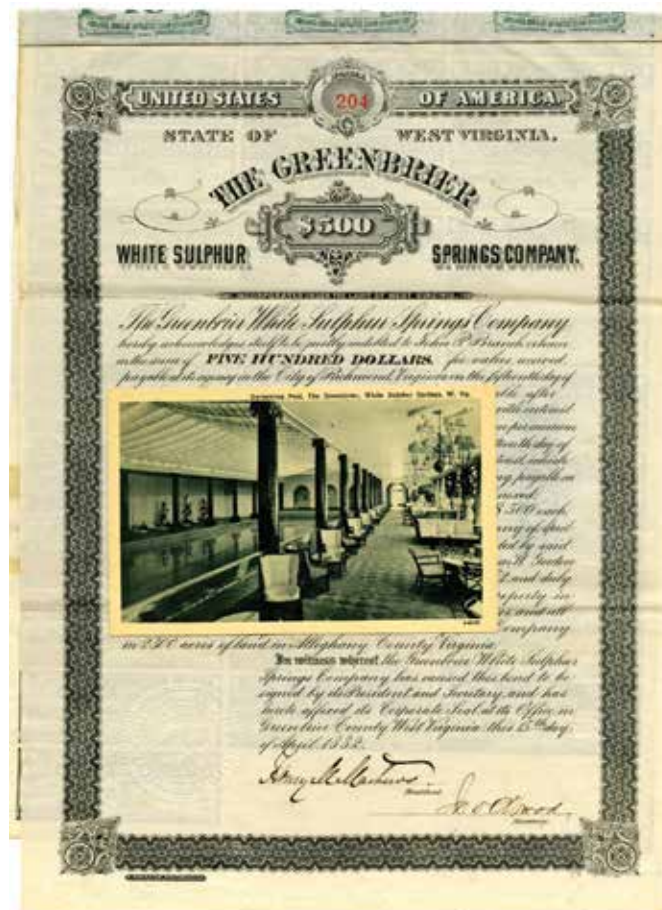 UNITED STATES 204 OF AMERICA.
STATE OF WEST VIRGINIA.
THE GREENBRIER
$500
WHITE SULPHUR SPRINGS COMPANY.
INCORPORATED UNDER THE LAWS OF WEST VIRGINIA.
The Greenbrier White Sulphur Springs Company
hereby acknowledges itself to be justly indebted to John P. Branch or bearer
in the sum of FIVE HUNDRED DOLLARS, for value received,
payable at its agency in the City of Richmond, Virginia on the fifteenth day of
after
with interest
per annum
day of
payable on
$500 each
by said
Gordon
and duly
property in
and all
Company
Swimming Pool, The Greenbrier, White Sulphur Springs, W. Va.
in 2500 acres of land in Alleghany County Virginia.
In witness whereof the Greenbrier White Sulphur
Springs Company has caused this bond to be
signed by its President and Secretary, and has
hereto affixed its Corporate Seal, at its Office in
Greenbrier County West Virginia this 15th day
of April 1882.
President
Secretary